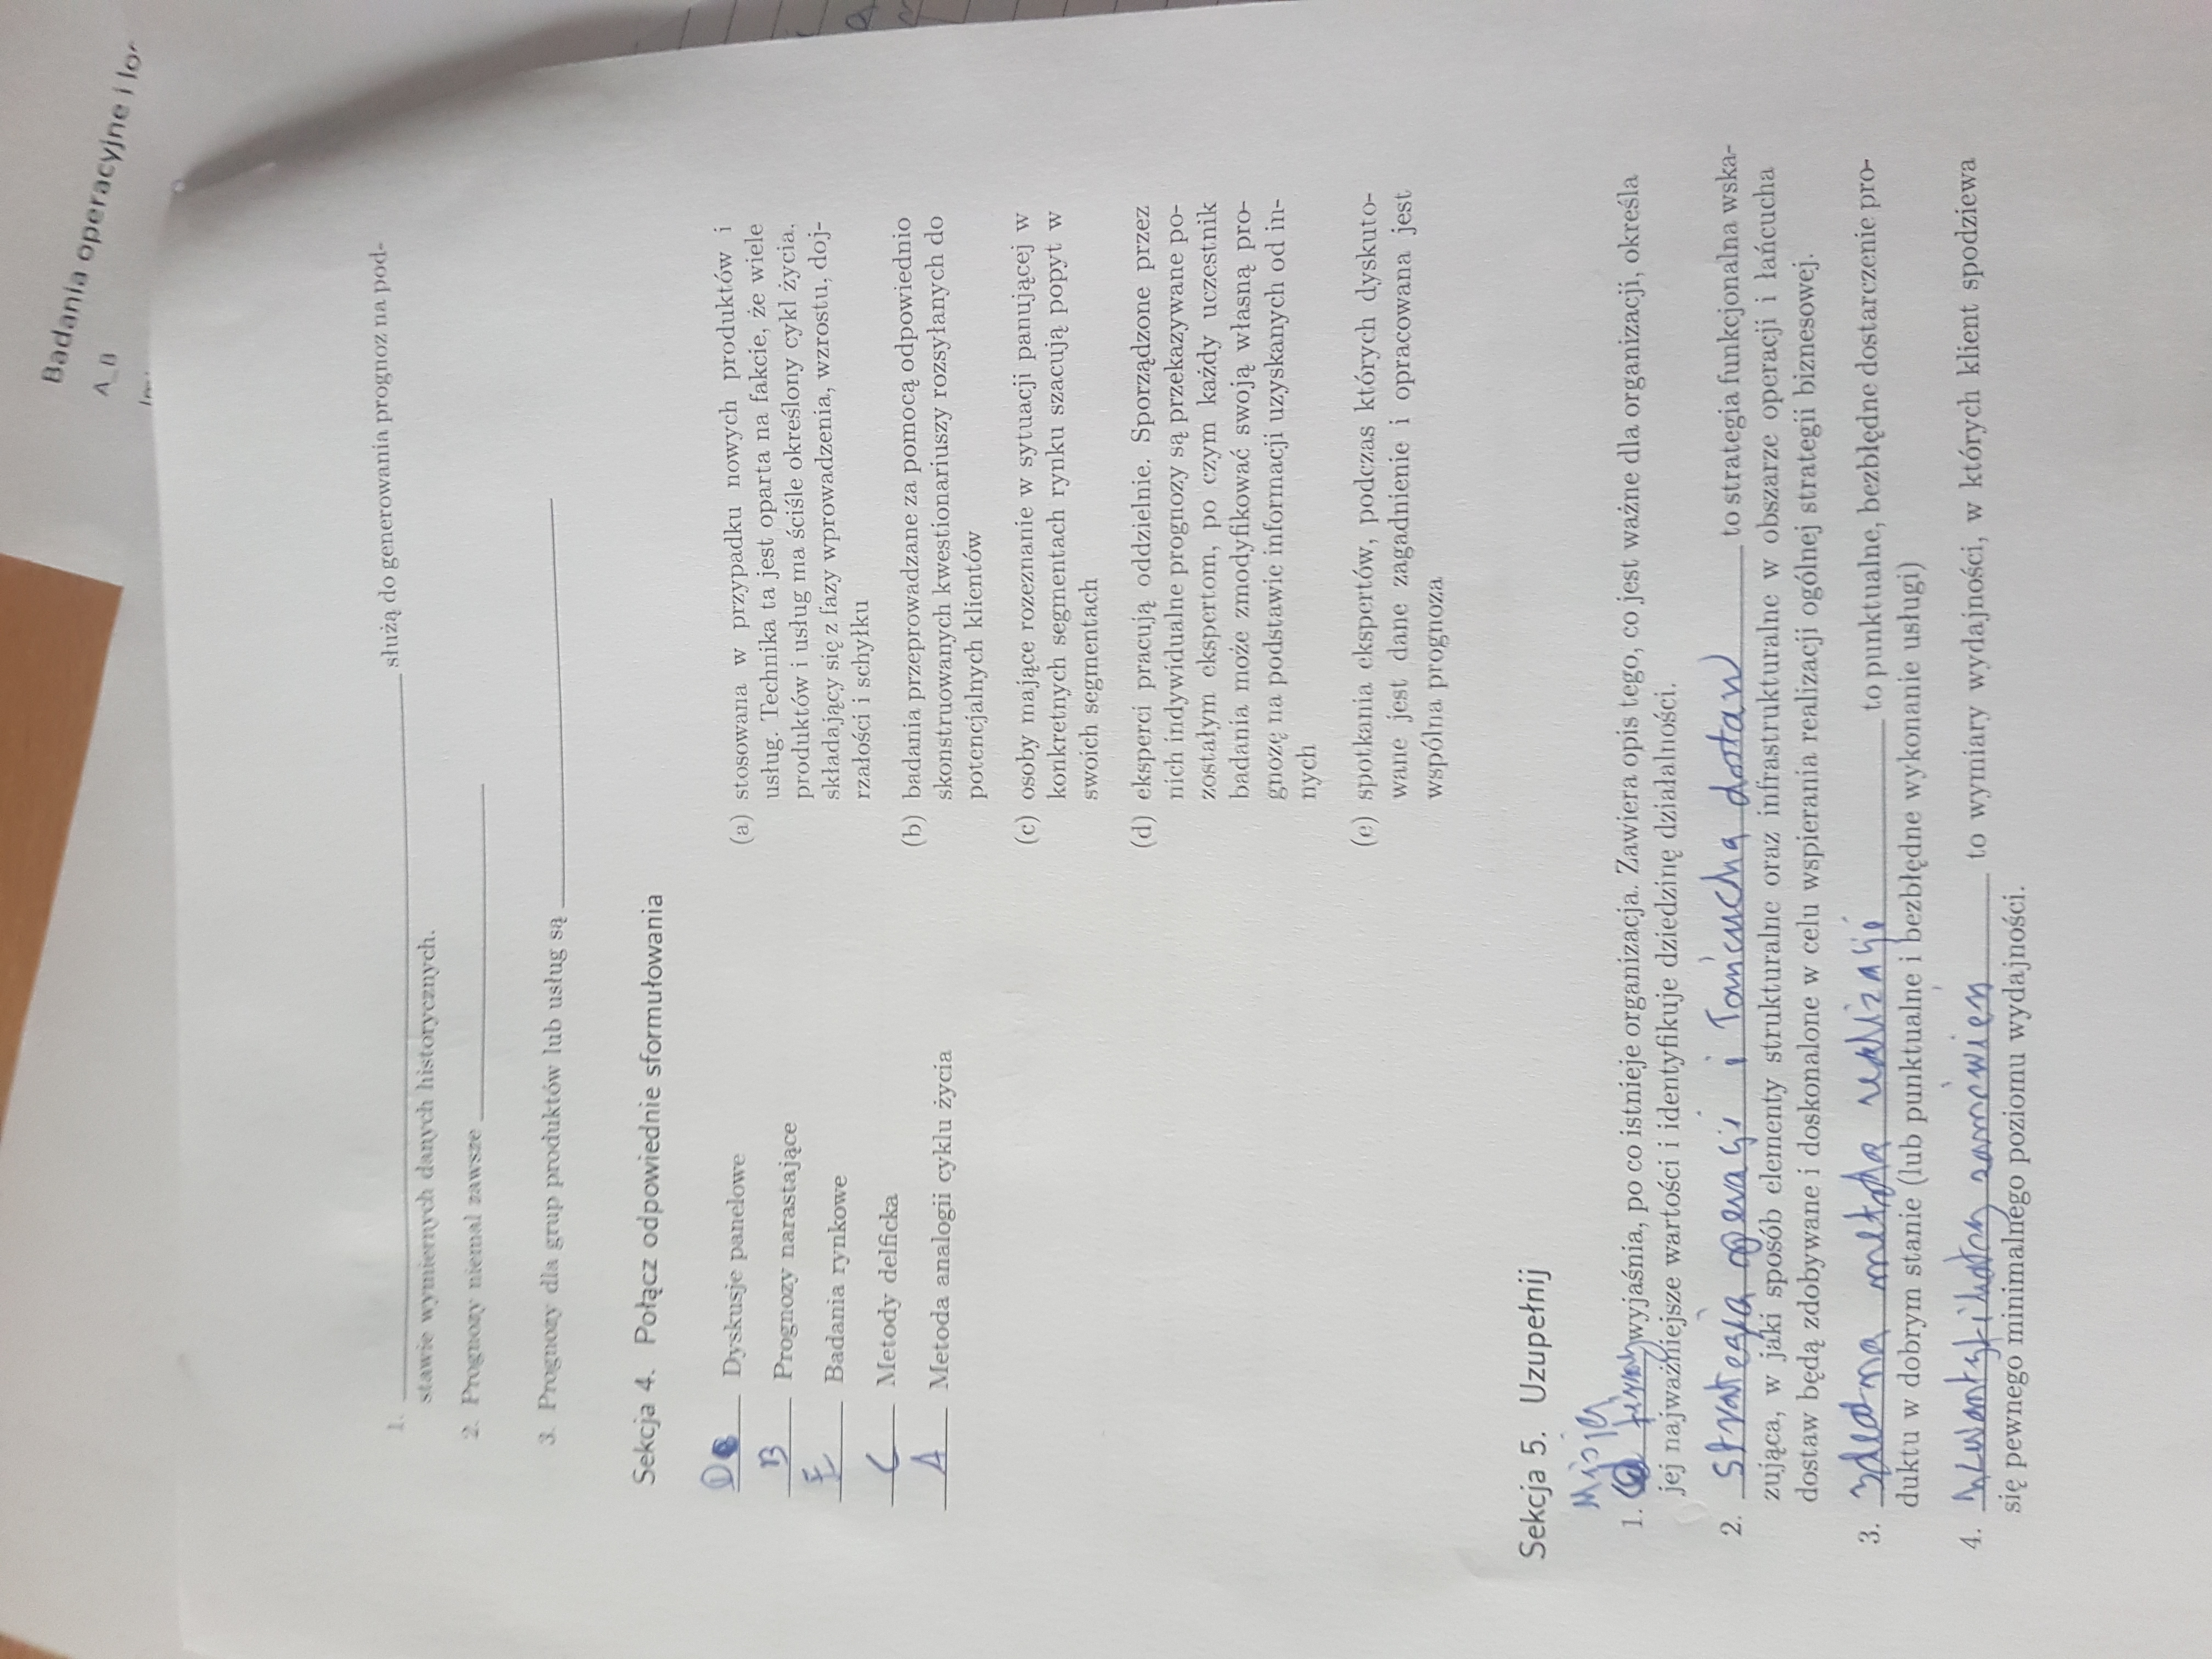 Badania operacyjne i
A_B
1. ______ służą do generowania prognoz na pod-
stawie wymiernych danych historycznych.
2. Prognozy niemal zawsze ______
3. Prognozy dla grup produktów lub usług są ______
Sekcja 4. Połącz odpowiednie sformułowania
D Dyskusje panelowe
B Prognozy narastające
E Badania rynkowe
C Metody delficka
A Metoda analogii cyklu życia
(a) stosowana w przypadku nowych produktów i
usług. Technika ta jest oparta na fakcie, że wiele
produktów i usług ma ściśle określony cykl życia,
składający się z fazy wprowadzenia, wzrostu, doj-
rzałości i schyłku
(b) badania przeprowadzane za pomocą odpowiednio
skonstruowanych kwestionariuszy rozsyłanych do
potencjalnych klientów
(c) osoby mające rozeznanie w sytuacji panującej w
konkretnych segmentach rynku szacują popyt w
swoich segmentach
(d) eksperci pracują oddzielnie. Sporządzone przez
nich indywidualne prognozy są przekazywane po-
zostałym ekspertom, po czym każdy uczestnik
badania może zmodyfikować swoją własną pro-
gnozę na podstawie informacji uzyskanych od in-
nych
(e) spotkania ekspertów, podczas których dyskuto-
wane jest dane zagadnienie i opracowana jest
wspólna prognoza
Sekcja 5. Uzupełnij
Misja
1. firmy wyjaśnia, po co istnieje organizacja. Zawiera opis tego, co jest ważne dla organizacji, określa
jej najważniejsze wartości i identyfikuje dziedzinę działalności.
2. strategia operacji i łańcucha dostaw to strategia funkcjonalna wska-
zująca, w jaki sposób elementy strukturalne oraz infrastrukturalne w obszarze operacji i łańcucha
dostaw będą zdobywane i doskonalone w celu wspierania realizacji ogólnej strategii biznesowej.
3. metoda realizacji to punktualne, bezbłędne dostarczenie pro-
duktu w dobrym stanie (lub punktualne i bezbłędne wykonanie usługi)
4. zamówień to wymiary wydajności, w których klient spodziewa
się pewnego minimalnego poziomu wydajności.